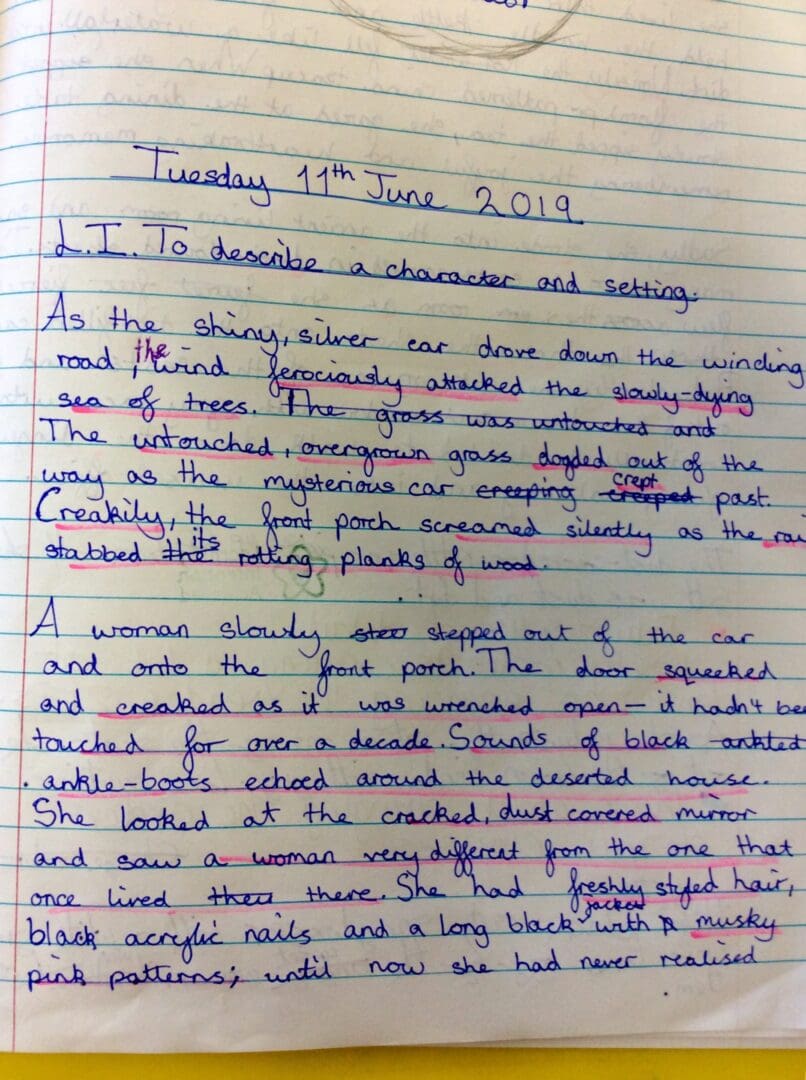 Tuesday 11th June 2019
L.I. To describe a character and setting.
As the shiny, silver car drove down the winding
road, the wind ferociously attacked the slowly-dying
sea of trees. The grass was untouched and
The untouched, overgrown grass dogded out of the
way as the mysterious car creeping creeped crept past.
Creakily, the front porch screamed silently as the
stabbed the its rotting planks of wood.
A woman slowly stepped out of the car
and onto the front porch. The door squeeked
and creaked as it was wrenched open - it hadn't
touched for over a decade. Sounds of black ankled
ankle-boots echoed around the deserted house.
She looked at the cracked, dust covered mirror
and saw a woman very different from the one that
once lived there. She had freshly styled hair,
black acrylic nails and a long black jacket with musky
pink patterns; until now she had never realised